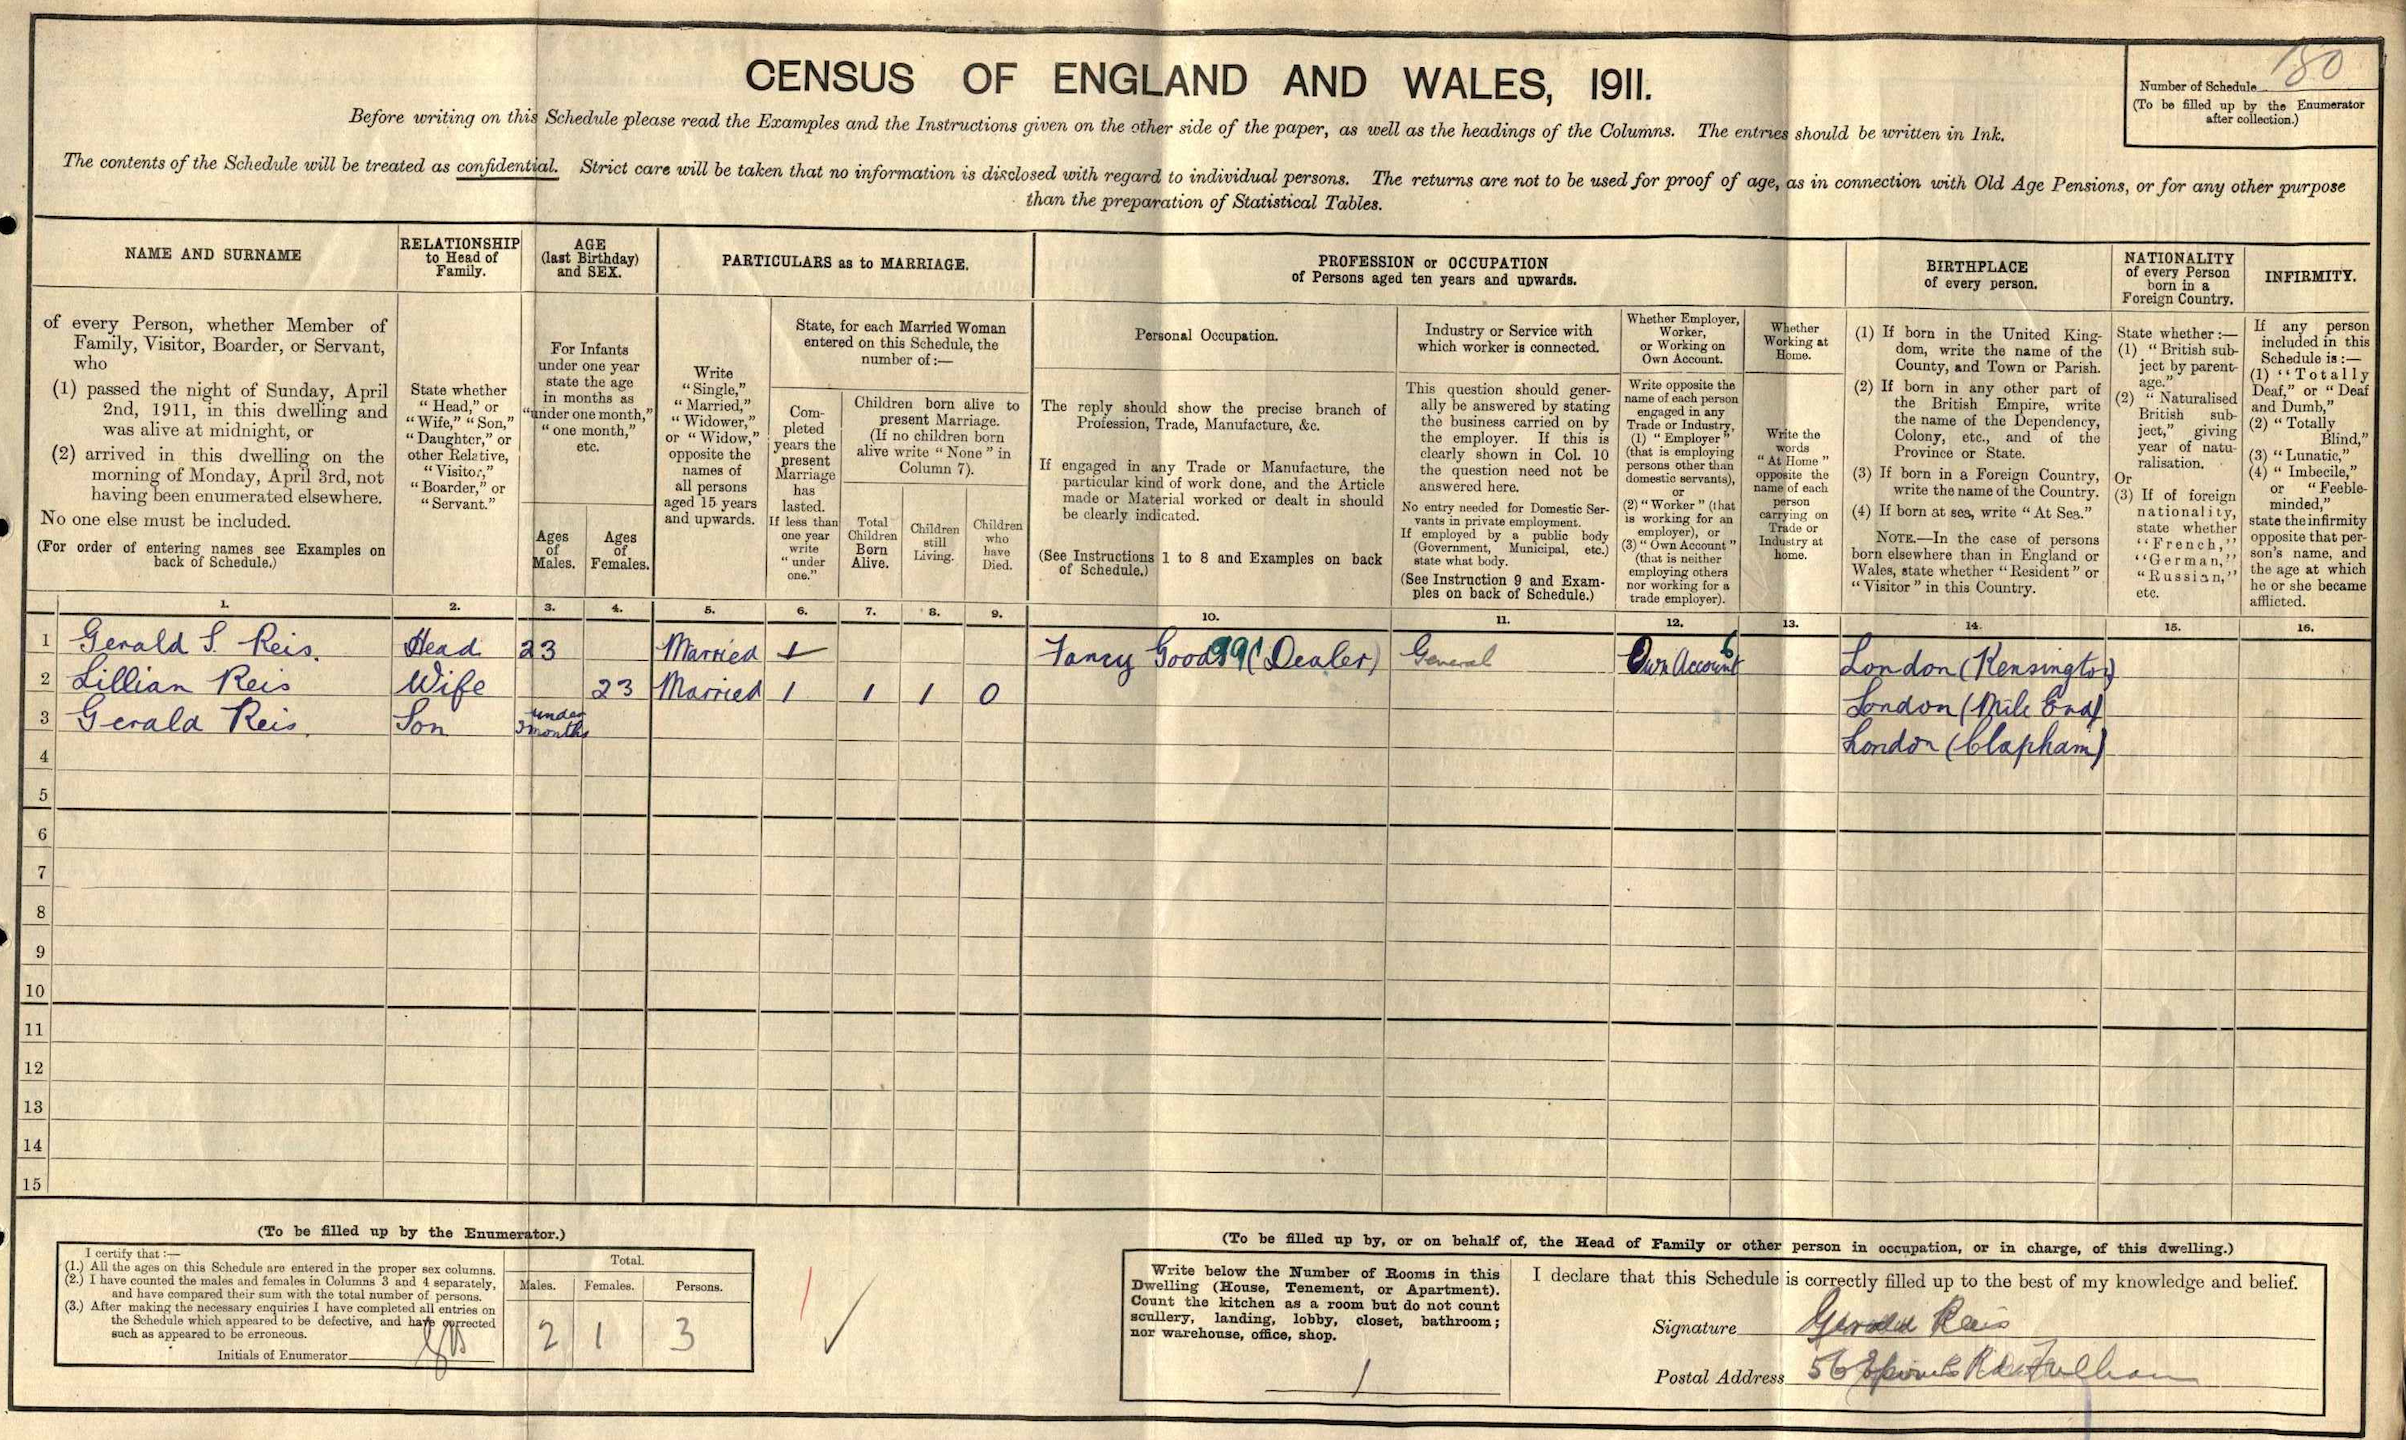 CENSUS OF ENGLAND AND WALES, 1911.
Number of Schedule 180
(To be filled up by the Enumerator
after collection.)
Before writing on this Schedule please read the Examples and the Instructions given on the other side of the paper, as well as the headings of the Columns. The entries should be written in Ink.
The contents of the Schedule will be treated as confidential. Strict care will be taken that no information is disclosed with regard to individual persons. The returns are not to be used for proof of age, as in connection with Old Age Pensions, or for any other purpose
than the preparation of Statistical Tables.
NAME AND SURNAME
of every Person, whether Member of
Family, Visitor, Boarder, or Servant,
who
(1) passed the night of Sunday, April
2nd, 1911, in this dwelling and
was alive at midnight, or
(2) arrived in this dwelling on the
morning of Monday, April 3rd, not
having been enumerated elsewhere.
No one else must be included.
(For order of entering names see Examples on
back of Schedule.)
RELATIONSHIP
to Head of
Family.
State whether
"Head," or
"Wife," "Son,"
"Daughter," or
other Relative,
"Visitor,"
"Boarder," or
"Servant."
AGE
(last Birthday)
and SEX.
For Infants
under one year
state the age
in months as
"under one month,"
"one month,"
etc.
Ages
of
Males.
Ages
of
Females.
PARTICULARS as to MARRIAGE.
Write
"Single,"
"Married,"
"Widower,"
or "Widow,"
opposite the
names of
all persons
aged 15 years
and upwards.
State, for each Married Woman
entered on this Schedule, the
number of:—
Com-
pleted
years the
present
Marriage
has
lasted.
If less than
one year
write
"under
one."
Children born alive to
present Marriage.
(If no children born
alive write "None" in
Column 7).
Total
Children
Born
Alive.
Children
still
Living.
Children
who
have
Died.
PROFESSION or OCCUPATION
of Persons aged ten years and upwards.
Personal Occupation.
The reply should show the precise branch of
Profession, Trade, Manufacture, &c.
If engaged in any Trade or Manufacture, the
particular kind of work done, and the Article
made or Material worked or dealt in should
be clearly indicated.
(See Instructions 1 to 8 and Examples on back
of Schedule.)
Industry or Service with
which worker is connected.
This question should gener-
ally be answered by stating
the business carried on by
the employer. If this is
clearly shown in Col. 10
the question need not be
answered here.
No entry needed for Domestic Ser-
vants in private employment.
If employed by a public body
(Government, Municipal, etc.)
state what body.
(See Instruction 9 and Exam-
ples on back of Schedule.)
Whether Employer,
Worker,
or Working on
Own Account.
Write opposite the
name of each person
engaged in any
Trade or Industry,
(1) "Employer"
(that is employing
persons other than
domestic servants),
or
(2) "Worker" (that
is working for an
employer), or
(3) "Own Account"
(that is neither
employing others
nor working for a
trade employer).
Whether
Working at
Home.
Write the
words
"At Home"
opposite the
name of each
person
carrying on
Trade or
Industry at
home.
BIRTHPLACE
of every person.
(1) If born in the United King-
dom, write the name of the
County, and Town or Parish.
(2) If born in any other part of
the British Empire, write
the name of the Dependency,
Colony, etc., and of the
Province or State.
(3) If born in a Foreign Country,
write the name of the Country.
(4) If born at sea, write "At Sea."
NOTE.—In the case of persons
born elsewhere than in England or
Wales, state whether "Resident" or
"Visitor" in this Country.
NATIONALITY
of every Person
born in a
Foreign Country.
State whether:—
(1) "British sub-
ject by parent-
age."
(2) "Naturalised
British sub-
ject," giving
year of natu-
ralisation.
Or
(3) If of foreign
nationality,
state whether
"French,"
"German,"
"Russian,"
etc.
INFIRMITY.
If any person
included in this
Schedule is:—
(1) "Totally
Deaf," or "Deaf
and Dumb,"
(2) "Totally
Blind,"
(3) "Lunatic,"
(4) "Imbecile,"
or "Feeble-
minded,"
state the infirmity
opposite that per-
son's name, and
the age at which
he or she became
afflicted.
1. 2. 3. 4. 5. 6. 7. 8. 9. 10. 11. 12. 13. 14. 15. 16.
1 Gerald S. Reis. Head 23 Married 1 Fancy Goods (Dealer) General Own Account 6 London (Kensington)
2 Lillian Reis Wife 23 Married 1 1 1 0 London (Mile End)
3 Gerald Reis. Son under 3 months London (Clapham)
4
5
6
7
8
9
10
11
12
13
14
15
(To be filled up by the Enumerator.)
I certify that:—
(1.) All the ages on this Schedule are entered in the proper sex columns.
(2.) I have counted the males and females in Columns 3 and 4 separately,
and have compared their sum with the total number of persons.
(3.) After making the necessary enquiries I have completed all entries on
the Schedule which appeared to be defective, and have corrected
such as appeared to be erroneous.
Initials of Enumerator
Total.
Males. Females. Persons.
2 1 3
(To be filled up by, or on behalf of, the Head of Family or other person in occupation, or in charge, of this dwelling.)
Write below the Number of Rooms in this
Dwelling (House, Tenement, or Apartment).
Count the kitchen as a room but do not count
scullery, landing, lobby, closet, bathroom;
nor warehouse, office, shop.
1
I declare that this Schedule is correctly filled up to the best of my knowledge and belief.
Signature Gerald Reis
Postal Address 56 Rd Fulham